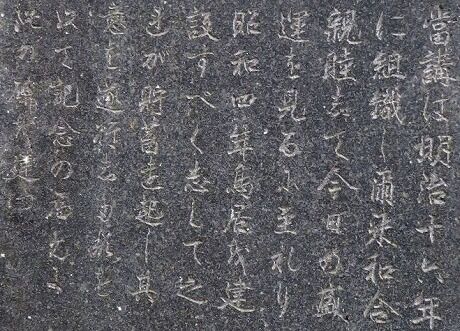 當講は明治十六年
に組織し爾来和合
親睦以て今日の盛
運を見るに至れり
昭和四年鳥居を建
設すべく志して之
が貯蓄を起し其
意を
以て記念の為